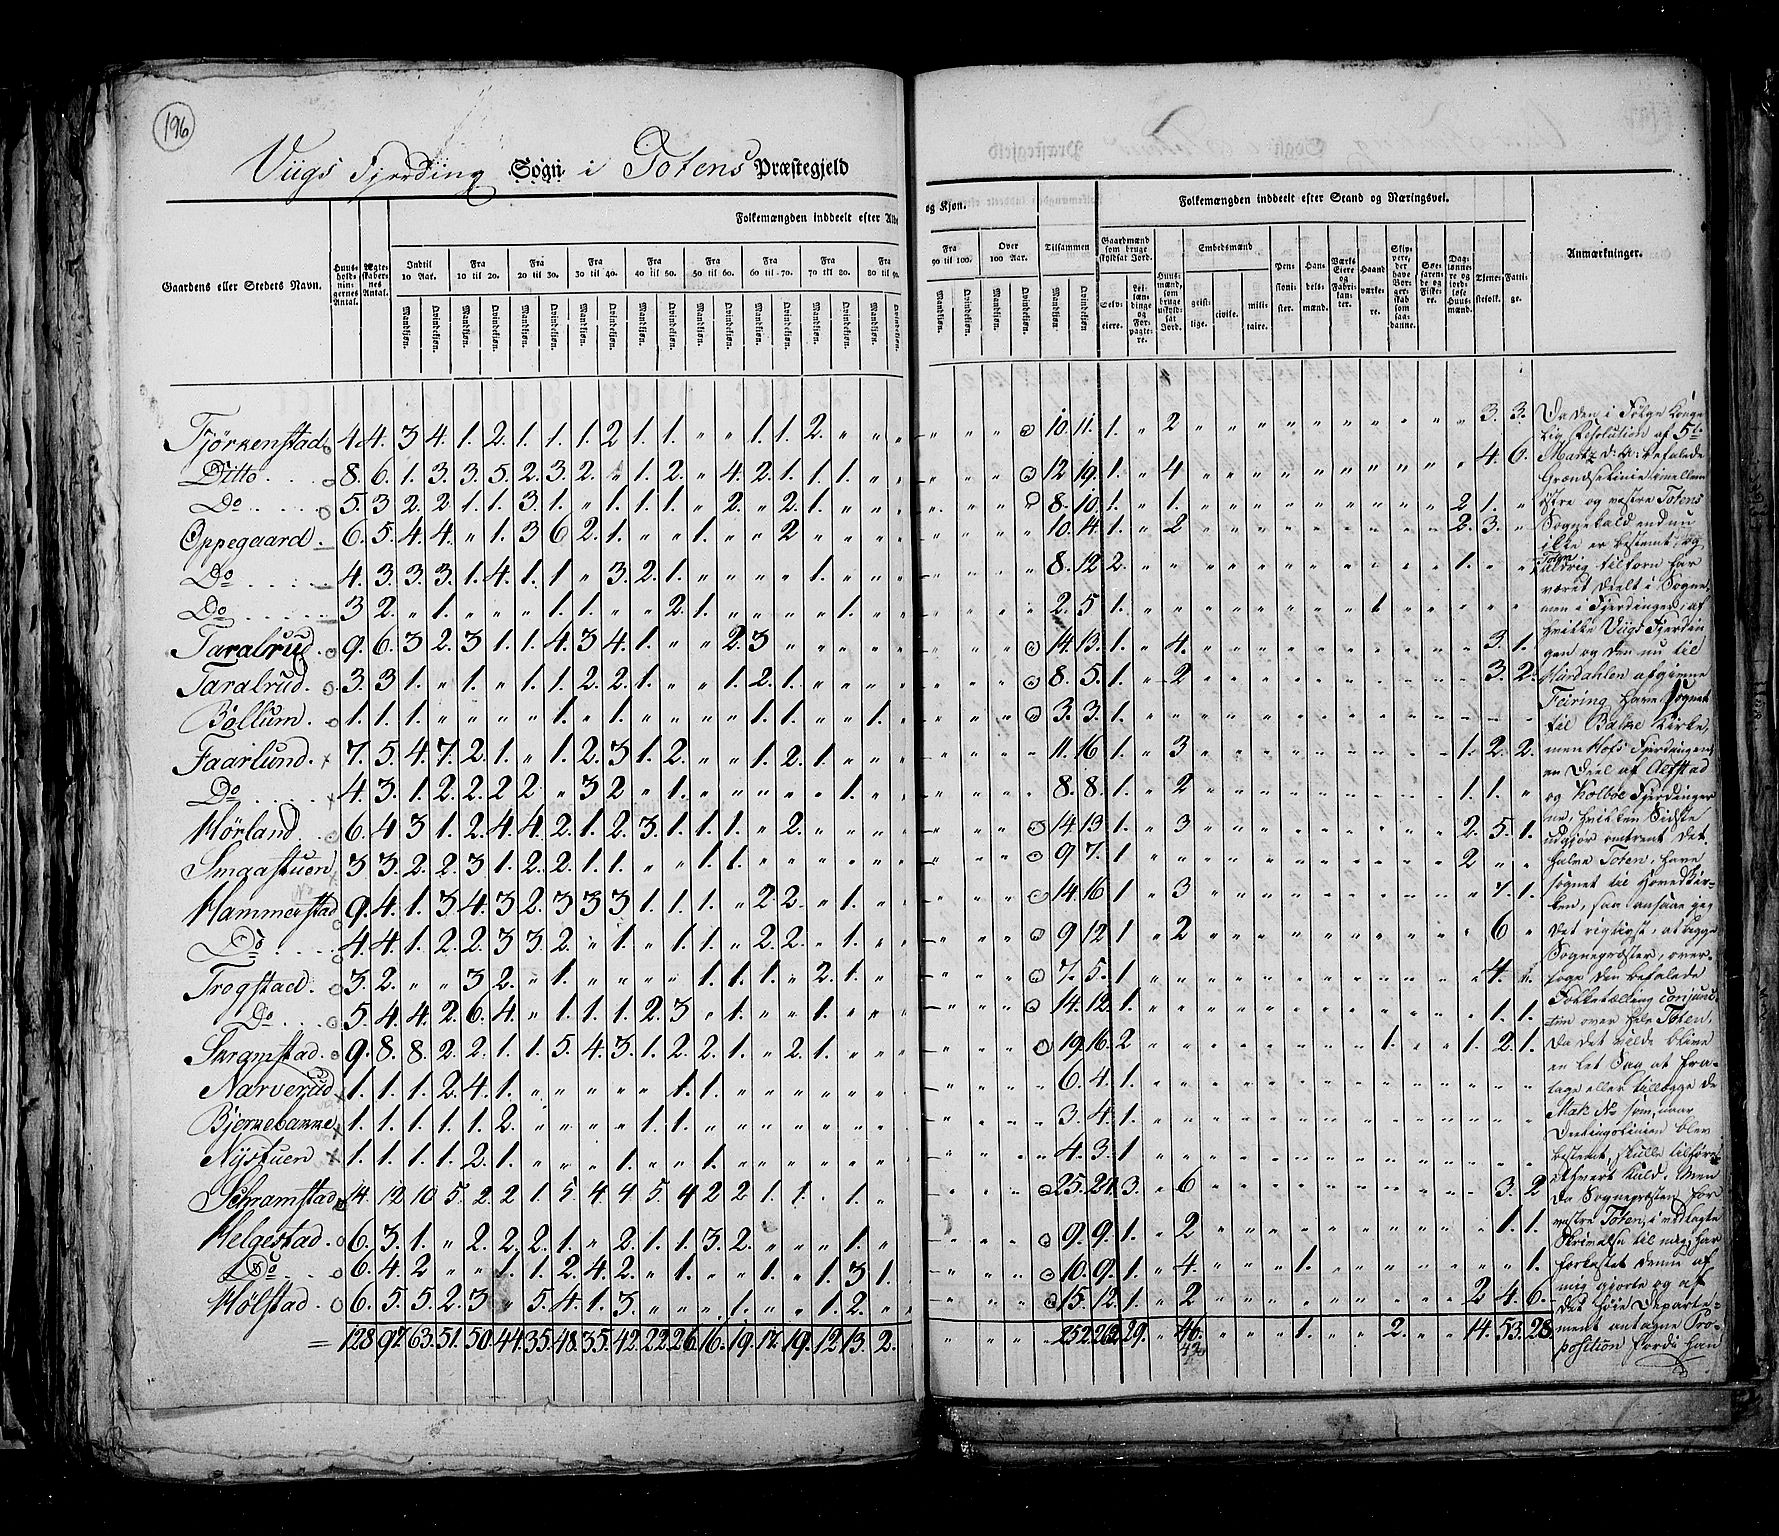 196
Viigs Fjerding Sogn i Totens Præstegjeld
Folkemængden inddeelt efter Alder
og Kjøn.
Folkemængden inddeelt efter Stand og Næringsvei.
Gaardens eller Stedets Navn.
Huusholdningernes Antal.
Ægteskabernes Antal.
Indtil 10 Aar.
Fra 10 til 20.
Fra 20 til 30.
Fra 30 til 40.
Fra 40 til 50.
Fra 50 til 60.
Fra 60 til 70.
Fra 70 til 80.
Fra 80 til 90.
Fra 90 til 100.
Over 100 Aar.
Tilsammen
Mandkjøn. Qvindekjøn.
Gaardmænd som bruge skyldsat Jord.
Selveiere.
Leilændinge og Forpagtere.
Huusmænd, som bruge uskyldsat Jord.
Embedsmænd
geistlige.
civile.
militaire.
Pensionister.
Handelsmænd.
Værks Eiere og Fabrikanter.
Haandværkere.
Skippere, der have Borgerskab som saadanne.
Søefarende og Fiskere.
Daglønnere og jordløse Huusmænd.
Tjenestefolk.
Fattige.
Anmærkninger.
Fjörkenstad 4. 4. 3 4. 1. 2. 1. 1. 1. 2 1. 1. „ „ 1. 1. 2. „ „ „ 10. 11. 1. „ 2 3. 3.
Ditto 8. 6. 1. 3. 3. 5. 2. 3. 2. „ 1. 2. „ 4. 2. 1. 1. 1. „ 12 19. 1. „ 4. 4. 6.
Do 5. 3 2. 2. 1. 1. 3. 1. „ 1. 1. 1. „ 2. „ 2. 1. „ 8. 10. 1. „ 1. 2 1. „
Oppegaard 6. 5. 4. 4. „ 1. 3 6 2. 1. „ „ 1. „ „ 2 „ 10. 4. 1. „ 2 2. 3. „
Do 4. 3. 3. 3. 1. 4. 1. 1. „ 3. 2. 1. „ „ „ „ 1. „ 8. 12 2. 1. „ „
Do 3 2. „ 1. „ „ „ 1. 1. „ „ 2. 1. „ „ „ „ 1. „ 2. 5 1. 1 „
Taralrud 9. 6. 3 2. 3 1. 1. 4. 3 4. 1. „ „ 2. 3 „ 14. 13. 1. „ 4. 3. 1.
Taralrud. 3. 3 1. „ 1. „ 1. 1. 2. 2. 1. „ „ 1. 2. 1. „ 8. 5. 1. „ 2 3. 2.
Böllum. 1. 1. 1. „ „ „ „ 1. „ 1. „ „ „ „ 1. 1. „ „ 1. 3. 3. 1.
Faarlund. 7. 5. 4. 7. 2. 1. „ 1. 2. 3 1. 2. „ „ 1. 2. 1. „ 11. 16 1. „ 3. 1. 2. 2.
Do 4. 3. 1. 2. 2. 2 2. „ 3 2. „ 1. „ „ „ „ „ 1. „ 8. 8. 1. „ 2 1. 1. „
Hörland. 6. 4 3 1. 2. 4. 4. 2. 1. 2. 3. 1. 1. 1. „ 2. „ 14. 13 1. „ 3 2. 5. 1.
Smaastuen 3 3. 2. 2. 3 1. 2. 2. 1. 1. „ „ 1. 1. „ 9 7. 1 2 „ „
Hammerstad 9. 4. 1. 3 4. 3 2. 3 3 3 1. 1. 1. „ 2 2. „ 1. „ 14. 16 1 „ 3 7. 1.
Do 4. 4. 1. 2. 2. 3 3. 2. „ 1. „ 1. 1. „ 2. 2. „ 1. „ 9 12 1 „ 2 6 „
Trogstad. 3. 2. „ „ 3 2. „ 1. „ „ „ „ 1. 1. 1. „ 2. 1. „ 7. 5. 1 4. „
Do 5. 4. 4. 2. 6. 4. „ 1. 1. 1. 2. 3 „ 1. „ „ 1. „ 14. 12. 1. 1. 1.
Skramstad. 9. 8. 8. 2. 2. 1. 1. 5. 4. 3. 1. 2. 2. 1. „ 2. 1. „ 19. 16. 2 1. 1. 2. 1.
Narverud 1. 1. 1. 2. 4. 1. „ „ „ „ „ 1. 1. „ 6. 4. 1.
Bjerkebakke 1. 1. 1. 1. 1. 2. „ „ „ „ 1. 1. „ 3. 4. 1.
Nystuen 1. 1. 1. 1. 2. 1. „ „ „ 1. „ „ 1. „ 4. 3. 1
Schramstad 14. 12 10 5. 2. 2. 1. 5. 4 4. 5. 4 2 2. 1. 1. „ 1. „ 25. 21. 3. „ 6 3. 2
Helgestad. 6. 3. 1. „ 2. 2. 2. 1. „ 2. 1. 1. 3. 2. „ „ „ 1. „ 9. 9. 1. „ 2 1. 1.
Do 6. 4. 2 „ „ 1. 1. 2. 4. 2. „ 1. „ „ 1. „ 1. 3 1. 10. 9. 1. „ 4. 1. 1.
Hölstad. 6. 5. 5. 2. 3 „ 5. 4. 1. 3. „ „ „ 1. „ „ 1. 2. „ 15. 12. 1. „ 2 2 4. 6.
= 128. 97. 63. 51. 50. 44. 35. 48. 35. 42. 22. 26. 16. 19. 17. 19. 12. 13. 2. 252. 262. 29. „ 46. 1. 2. 14. 53. 28.
43
Da den i Følge Konge-
lig Resolution af 5te
Martz d: A: befalede
Grændselinie imellem
østre og vestre Totens
Sognekald endnu
ikke er bestemt, og
Toten
aldrig tilforn har
været deelt i Sogne
men i Fjerdinger, af
hvilke Viigs Fjerdin
gen og den nu til
Hurdahlen afgivne
Feiring have Sognet
til Balke Kirke,
men Hofs Fjerdingen,
en Deel af Alfstad
og Kolboe Fjerdinger
ne, hvilken Sidste
udgjør omtrent det
halve Toten, have
søgnet til Hovedkir-
ken, saa ansaae jeg
det rigtigst, at begge
Sognepræster, over-
toge den befalede
Folketælling conjunc-
tim over hele Toten.
Da det vilde blive
en let Sag at fra-
tage eller tillægge de
Matr. No som, naar
Deelingslinien blev
bestemt, skulle tilføres
ethvert Kald. Men
da Sognepræsten for
vestre Toten, i vedlagte
Skrivelse til mig, har
forkastet denne af
mig gjorte og af
det høie Departe-
ment antagne Pro-
position fordi han